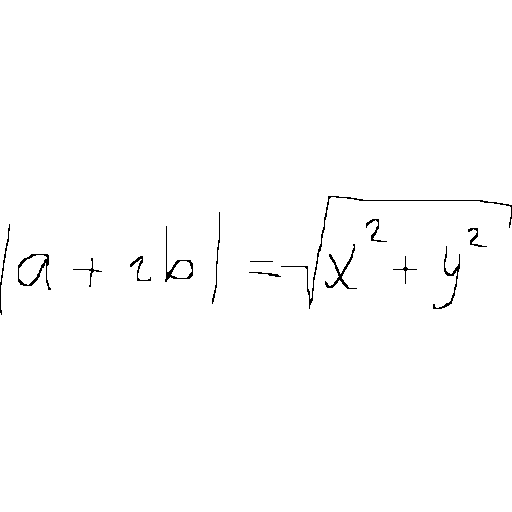 |a + 2b| = √(x² + y²)